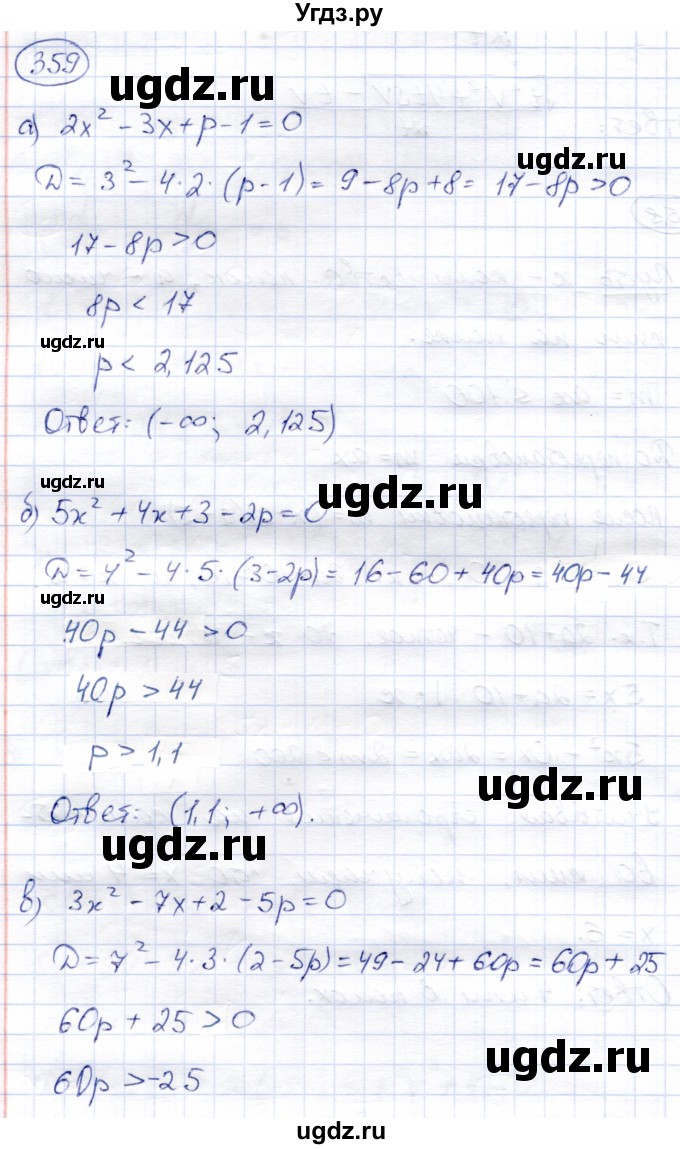 Угдз.ру
359
ugdz.ru
а) 2x² - 3x + p - 1 = 0
ugdz.ru
D = 3² - 4·2·(p - 1) = 9 - 8p + 8 = 17 - 8p > 0
17 - 8p > 0
ugdz.ru
8p < 17
ugdz.ru
p < 2,125
Ответ: (-∞; 2,125)
ugdz.ru
ugdz.ru
б) 5x² + 4x + 3 - 2p = 0
D = 4² - 4·5·(3 - 2p) = 16 - 60 + 40p = 40p - 44
ugdz.ru
40p - 44 > 0
ugdz.ru
40p > 44
p > 1,1
ugdz.ru
Ответ: (1,1; +∞).
ugdz.ru
в) 3x² - 7x + 2 - 5p = 0
D = 7² - 4·3·(2 - 5p) = 49 - 24 + 60p = 60p + 25
60p + 25 > 0
ugdz.ru
60p > -25
ugdz.ru